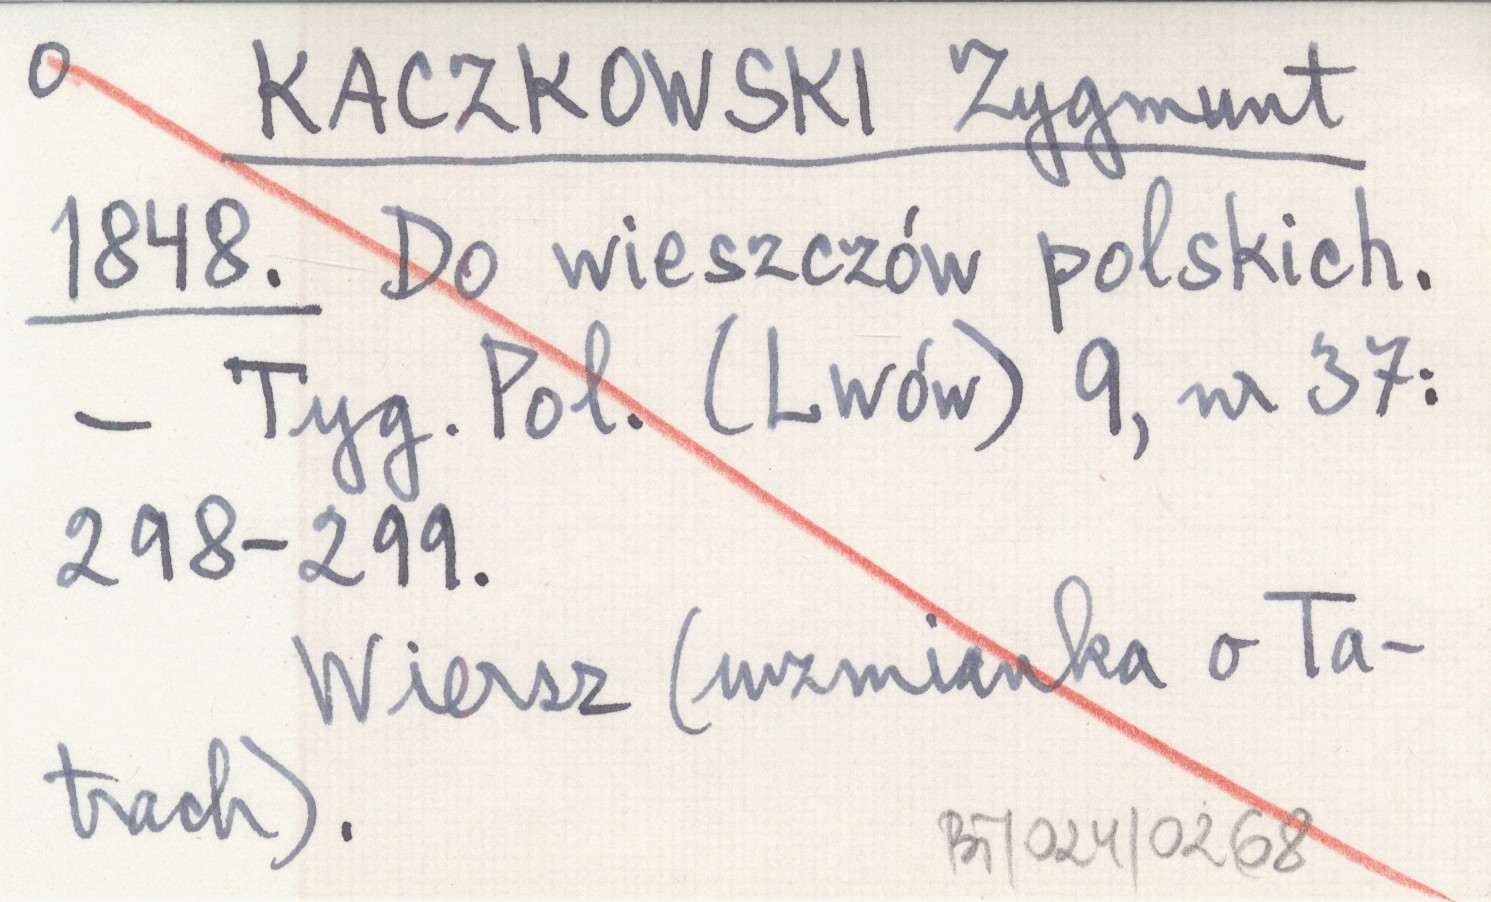 o KACZKOWSKI Zygmunt
1848. Do wieszczów polskich.
– Tyg. Pol. (Lwów) 9, nr 37:
298–299.
Wiersz (wzmianka o Ta-
trach).
BT/024/0268